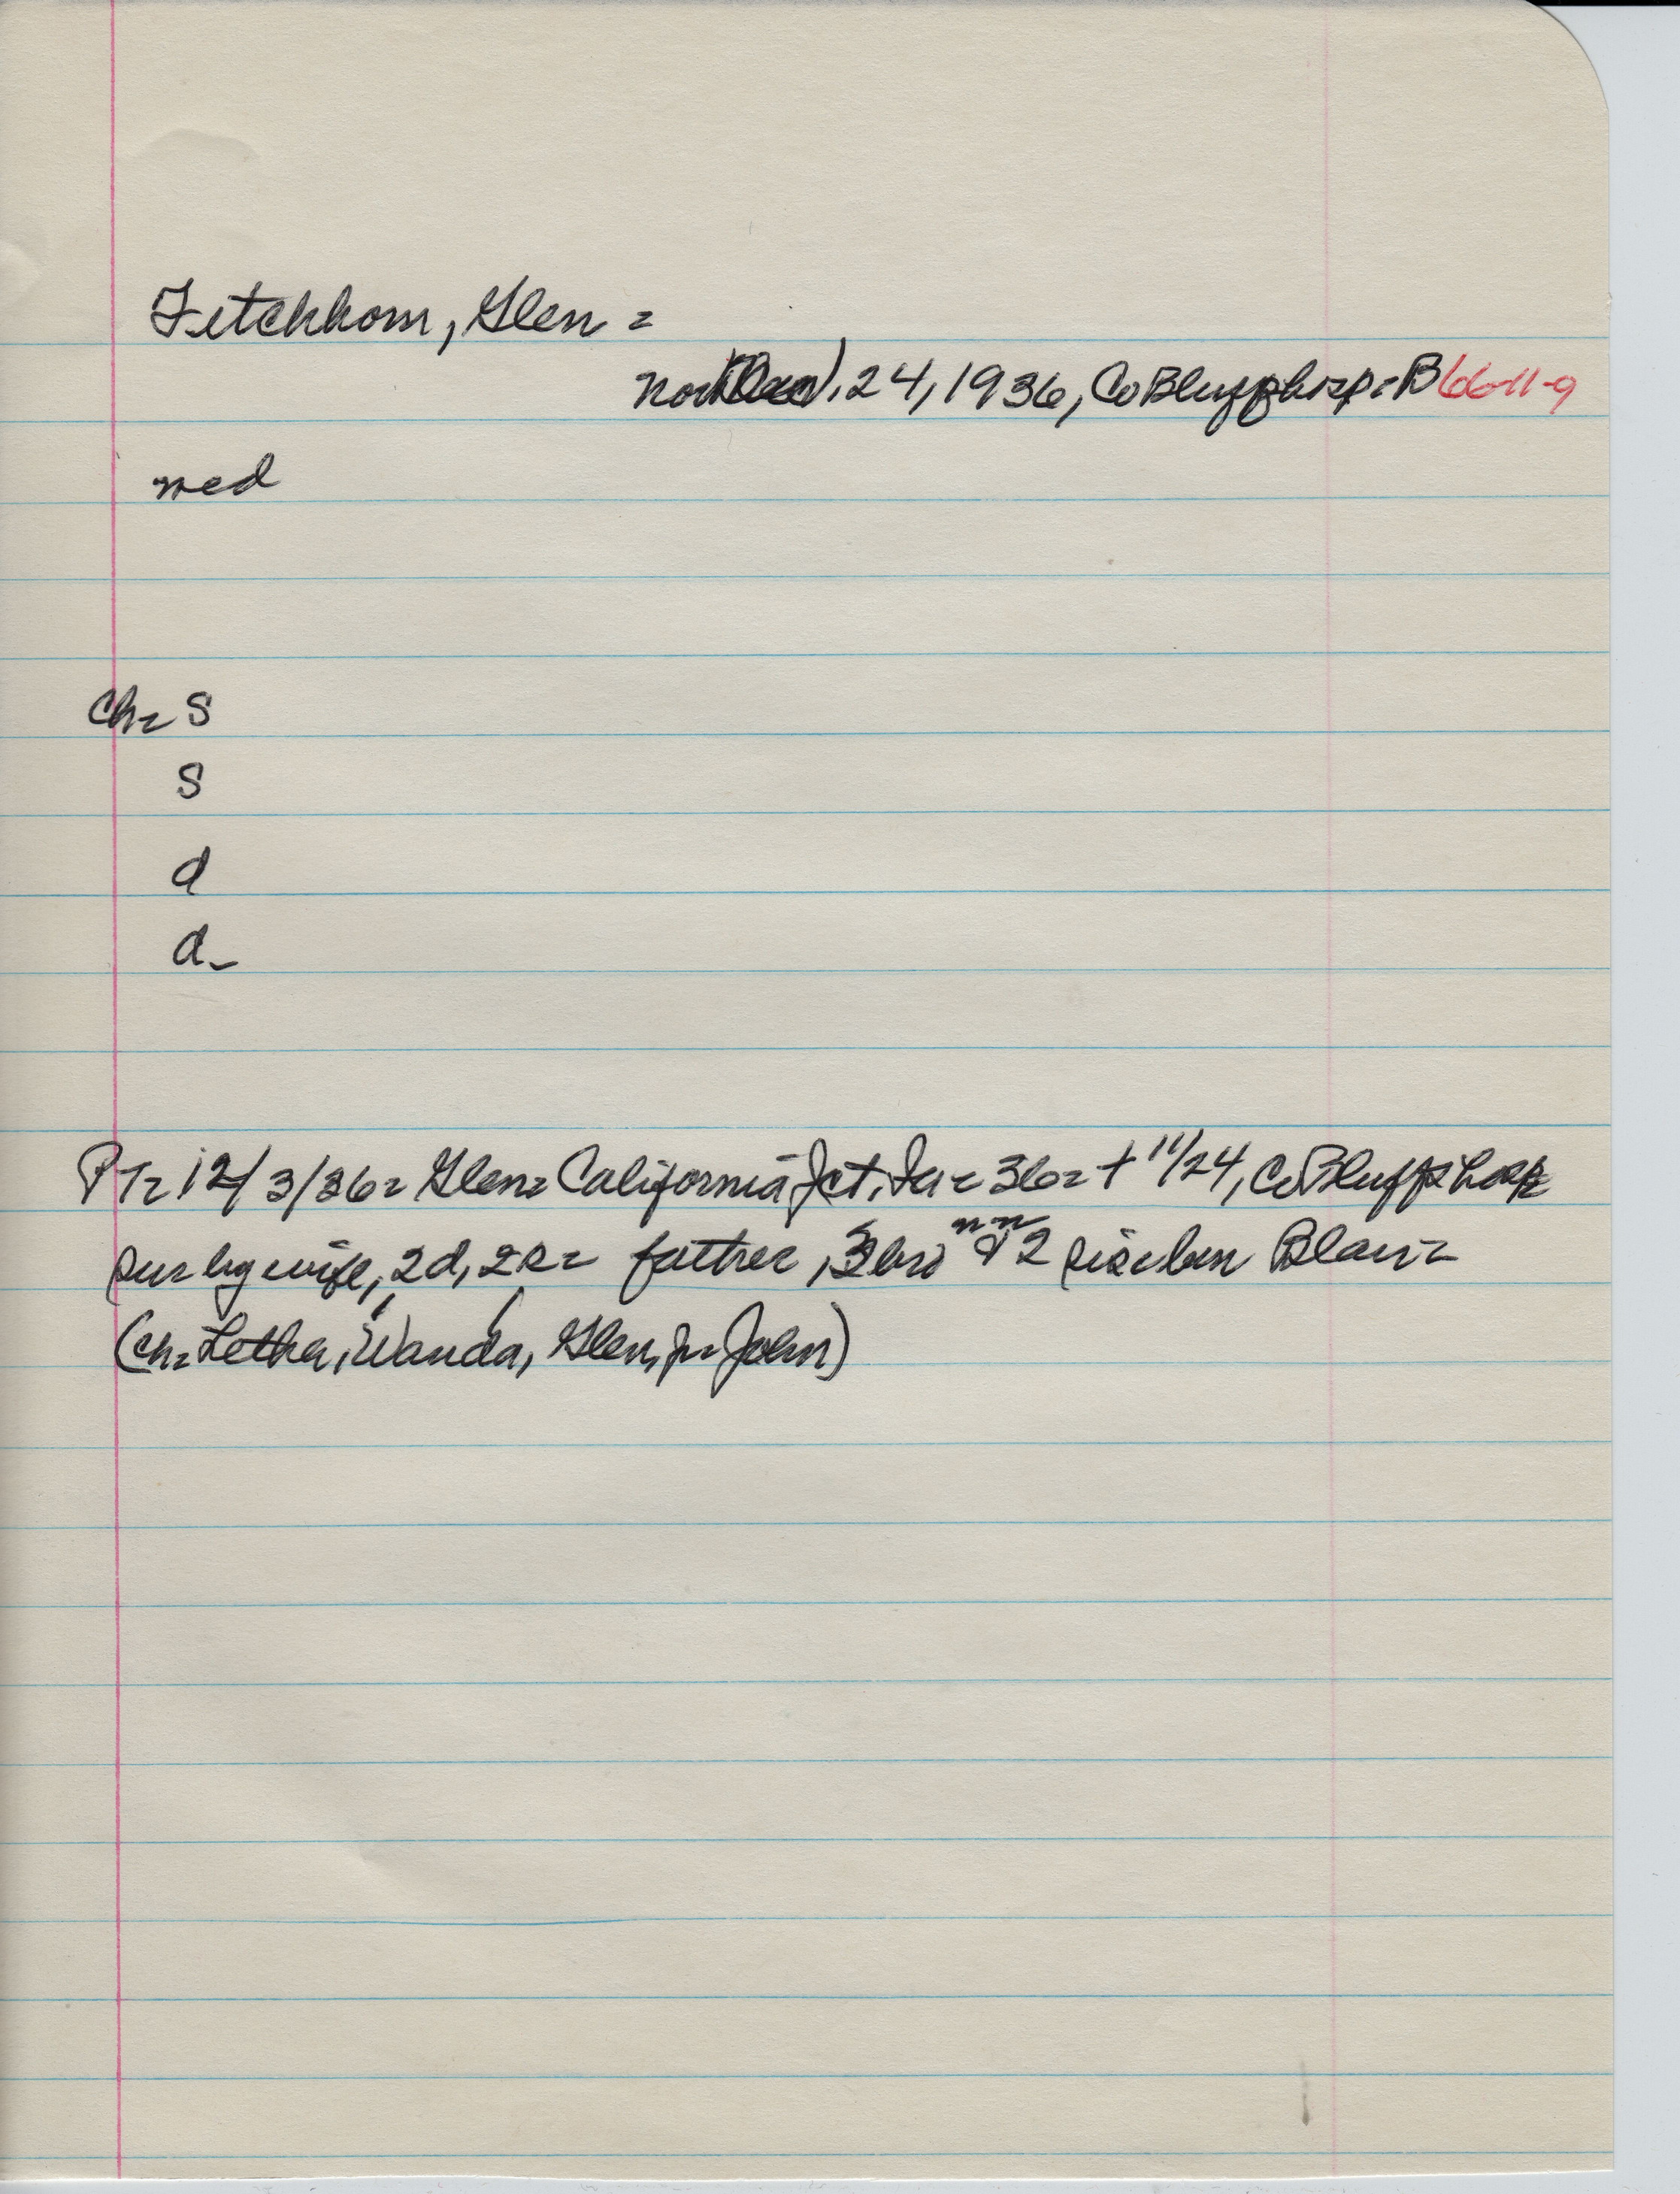 Fitchhorn, Glen =
Nov. 24, 1936, Co Bluffs hosp = B 66-11-9
med
Ch = S
S
d
d -
PT = 12/3/36 = Glen = California Jct, Ia = 36 = + 11/24, Co Bluffs hosp
sur by wife, 2d, 2s = father, 3 bro nn & 2 sis nn Blair =
(ch = Letha, Wanda, Glen, Jr = John)